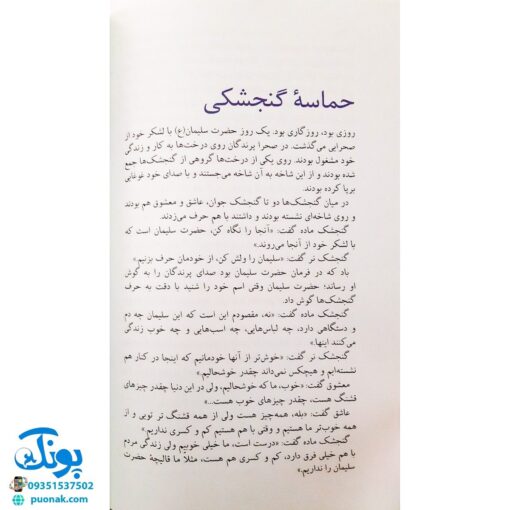 حماسهٔ گنجشکی
روزی بود، روزگاری بود. یک روز حضرت سلیمان(ع) با لشکر خود از
صحرایی می‌گذشت. در صحرا پرندگان روی درخت‌ها به کار و زندگی
خود مشغول بودند. روی یکی از درخت‌ها گروهی از گنجشک‌ها جمع
شده بودند و از این شاخه به آن شاخه می‌جستند و با صدای خود غوغایی
برپا کرده بودند.
در میان گنجشک‌ها دو تا گنجشک جوان، عاشق و معشوق هم بودند
و روی شاخه‌ای نشسته بودند و داشتند با هم حرف می‌زدند.
گنجشک ماده گفت: «آنجا را نگاه کن، حضرت سلیمان است که
با لشکر خود از آنجا می‌روند.»
گنجشک نر گفت: «سلیمان را ولش کن، از خودمان حرف بزنیم.»
باد که در فرمان حضرت سلیمان بود صدای پرندگان را به گوش
او رساند؛ حضرت سلیمان وقتی اسم خود را شنید با دقت به حرف
گنجشک‌ها گوش داد.
گنجشک ماده گفت: «نه، مقصودم این است که این سلیمان چه دم
و دستگاهی دارد، چه لباس‌هایی، چه اسب‌هایی و چه خوب زندگی
می‌کنند اینها.»
گنجشک نر گفت: «خوش‌تر از آنها خودمانیم که اینجا در کنار هم
نشسته‌ایم و هیچکس نمی‌داند چقدر خوشحالیم.»
معشوق گفت: «خوب، ما که خوشحالیم، ولی در این دنیا چقدر چیزهای
قشنگ هست، چقدر چیزهای خوب هست...»
عاشق گفت: «بله، همه‌چیز هست ولی از همه قشنگ تر تویی و از
همه خوب‌تر ما هستیم و وقتی با هم هستیم کم و کسری نداریم.»
گنجشک ماده گفت: «درست است، ما خیلی خوبیم ولی زندگی مردم
با هم خیلی فرق دارد، کم و کسری هم هست، مثلاً ما قالیچهٔ حضرت
سلیمان را نداریم.»
پونک
09351537502
puonak.com